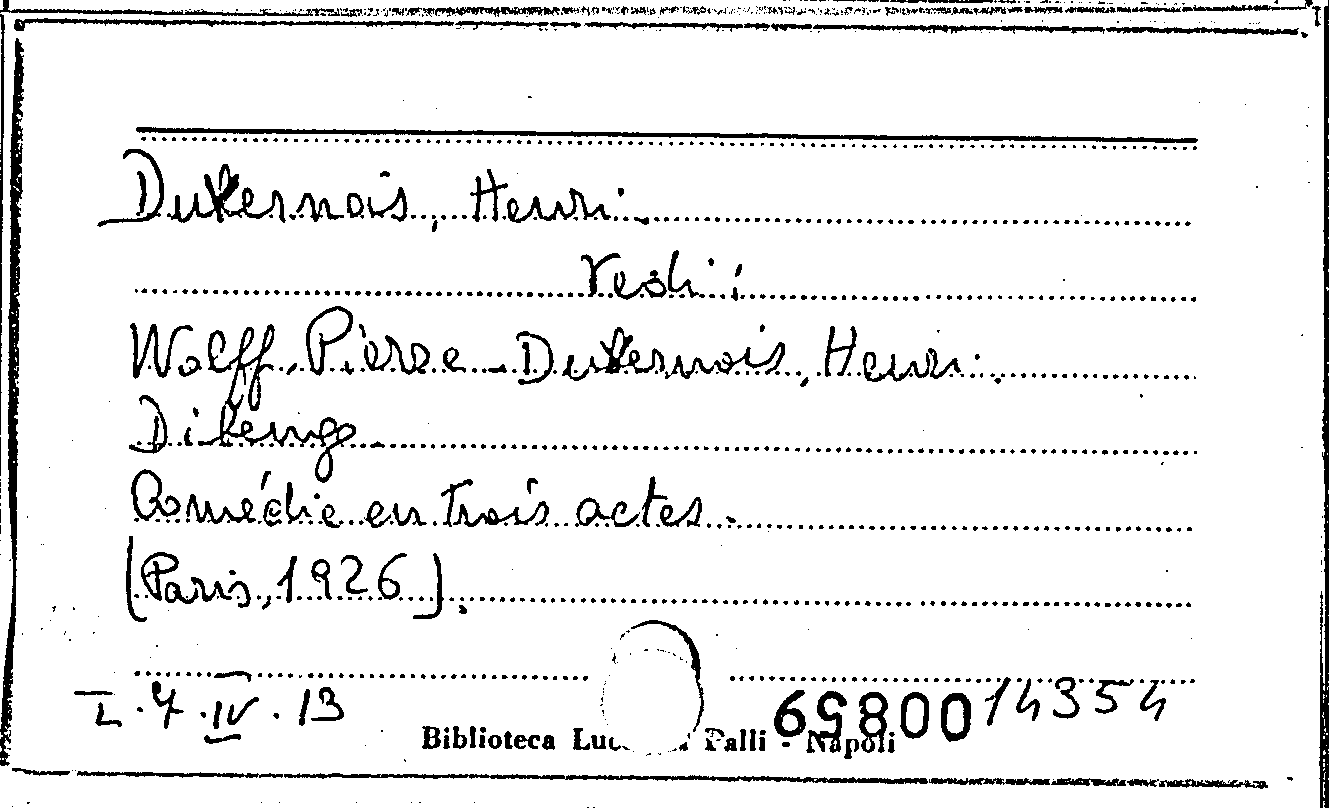 Duvernois, Henri.
Vedi:
Wolff, Pierre - Duvernois, Henri.
Comédie en trois actes.
[Paris, 1926].
I.4.IV.13
14354
Biblioteca Palli - Napoli